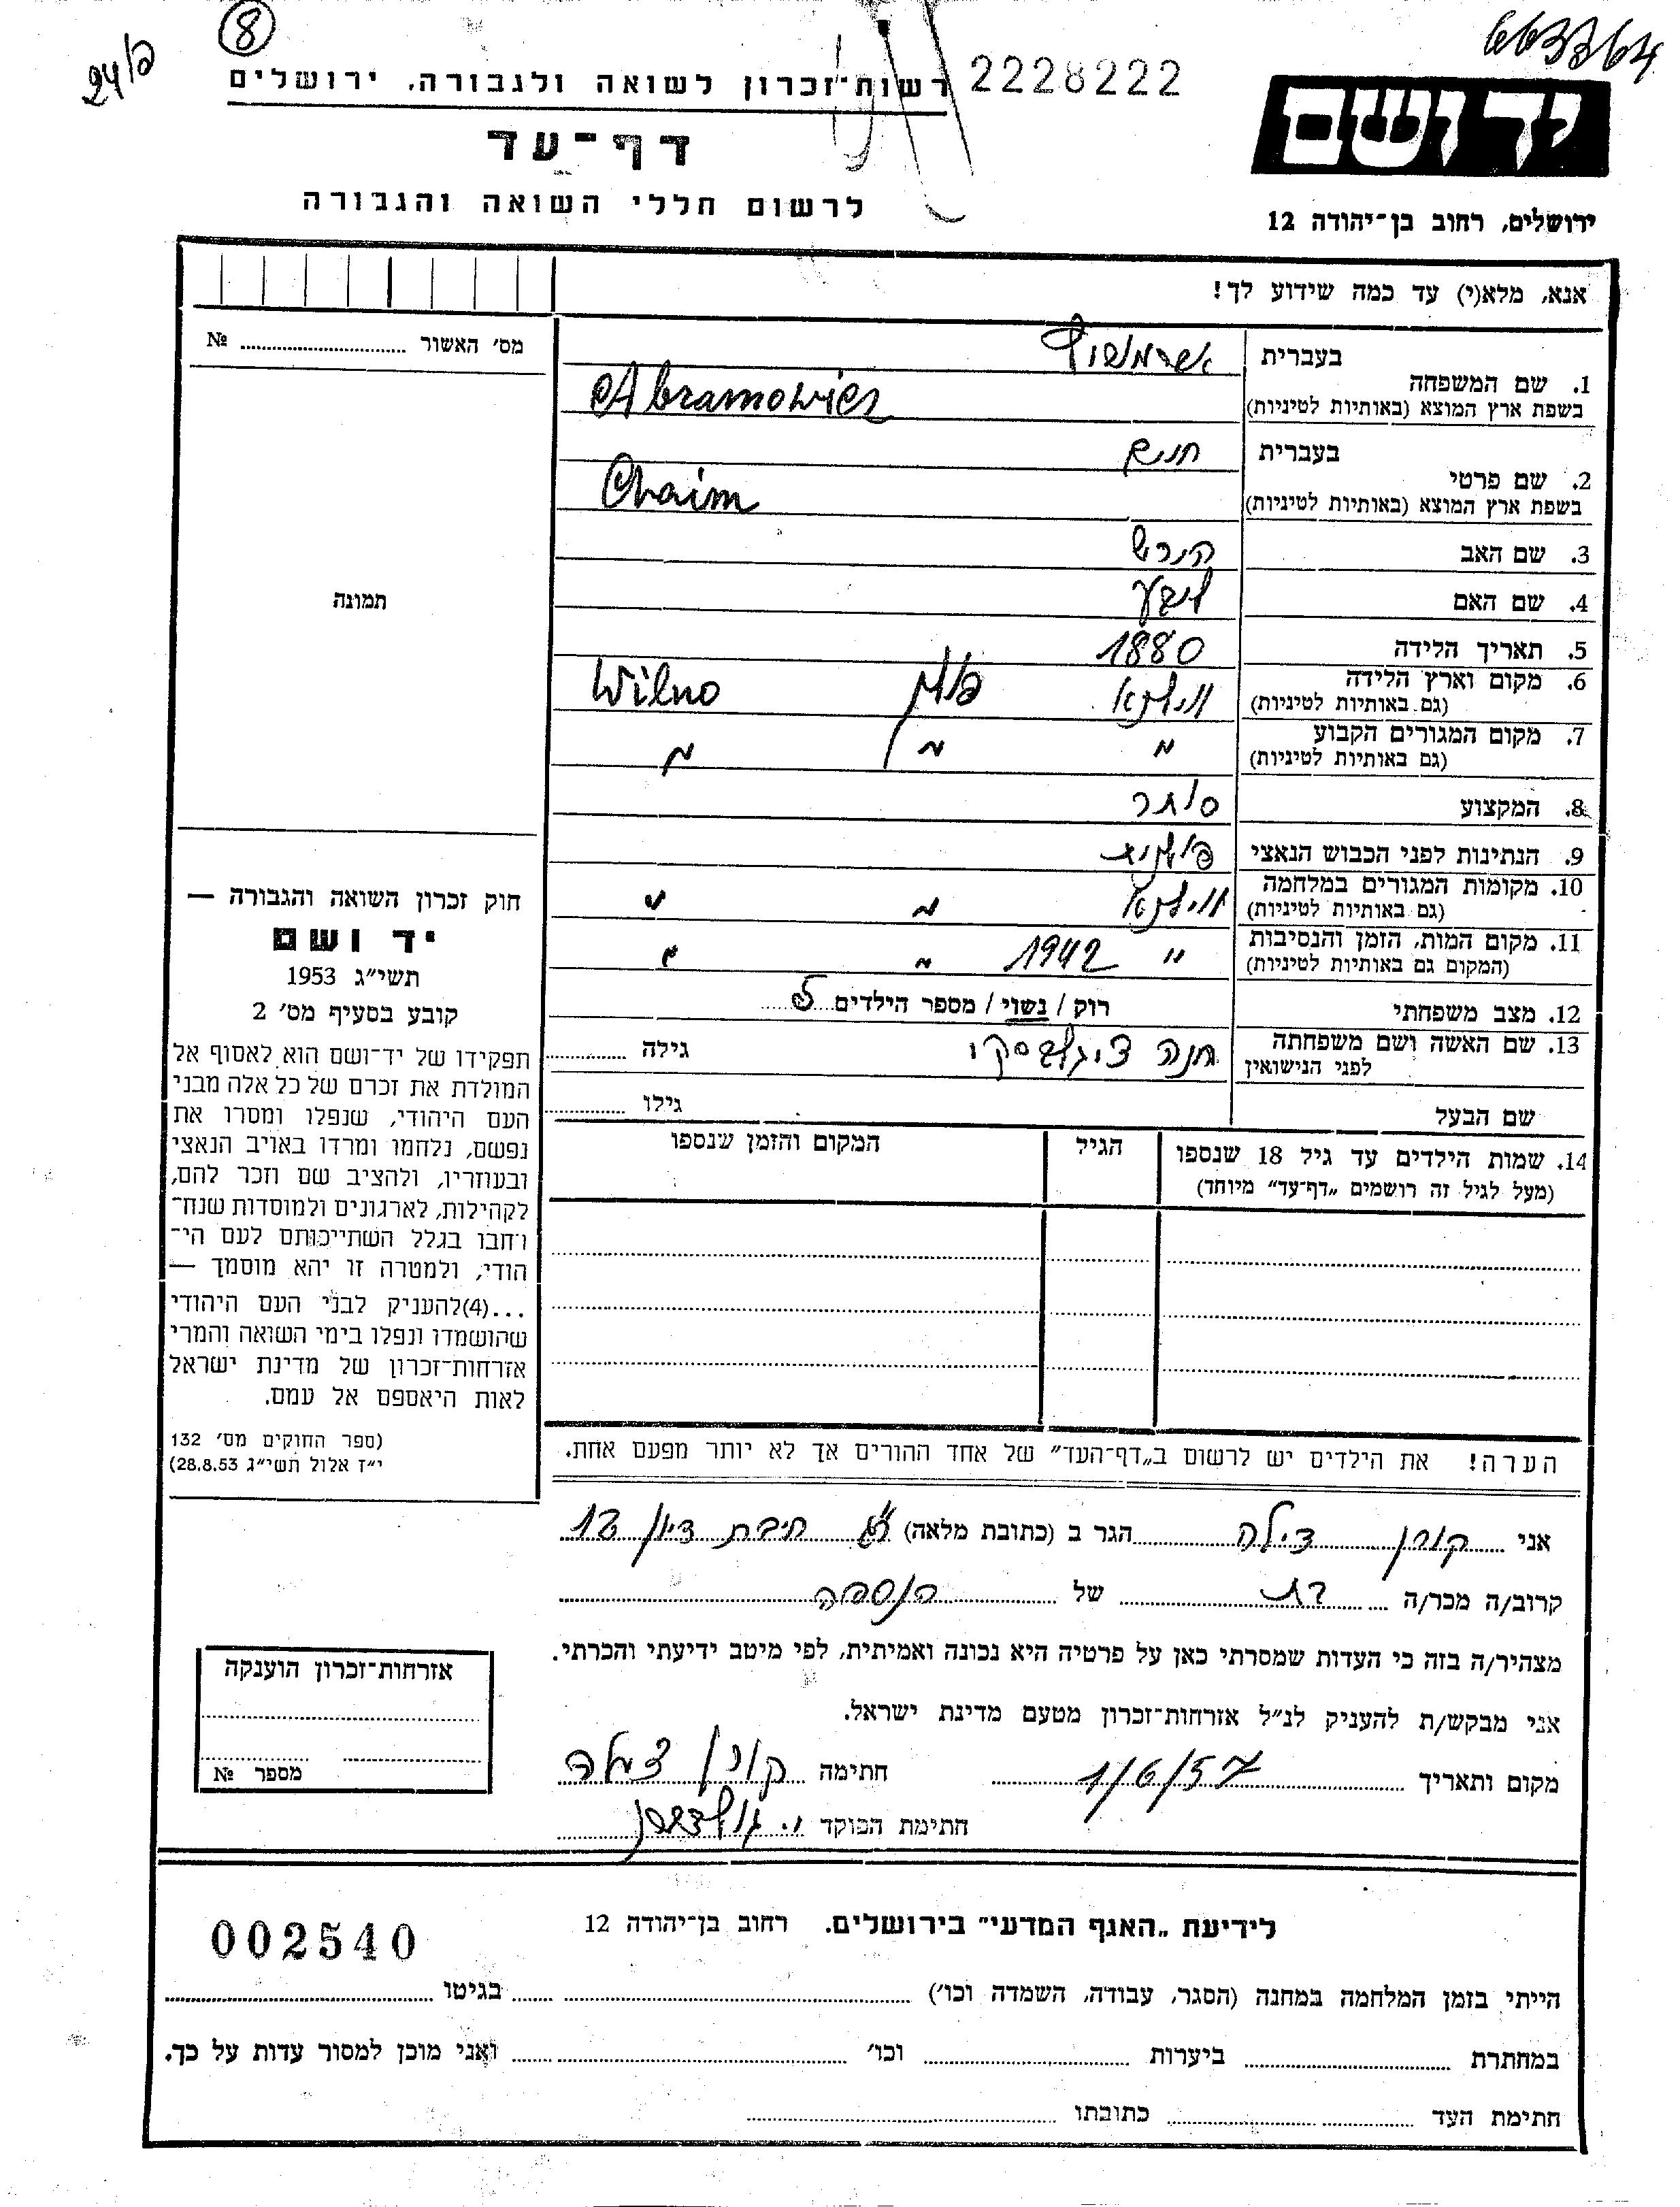 24/פ
8
663764
רשות־זכרון לשואה ולגבורה, ירושלים
2228222
יד ושם
דף־עד
לרשום חללי השואה והגבורה
ירושלים, רחוב בן־יהודה 12
אנא, מלא(י) עד כמה שידוע לך!
מס׳ האשור .......... №
תמונה
בעברית אברמוביץ
1. שם המשפחה
בשפת ארץ המוצא (באותיות לטיניות) Abramowicz
בעברית חיים
2. שם פרטי
בשפת ארץ המוצא (באותיות לטיניות) Chaim
3. שם האב הירש
4. שם האם
5. תאריך הלידה 1880
6. מקום וארץ הלידה
(גם באותיות לטיניות) ווילנא פולין Wilno
7. מקום המגורים הקבוע
(גם באותיות לטיניות) " " "
8. המקצוע סוחר
9. הנתינות לפני הכבוש הנאצי פולנית
10. מקומות המגורים במלחמה
(גם באותיות לטיניות) ווילנא " "
11. מקום המות, הזמן והנסיבות
(המקום גם באותיות לטיניות) " 1942 " "
12. מצב משפחתי רוק / נשוי / מספר הילדים 5
13. שם האשה ושם משפחתה
לפני הנישואין חנה גילה ..........
שם הבעל גילו ..........
14. שמות הילדים עד גיל 18 שנספו
(מעל לגיל זה רושמים „דף־עד״ מיוחד)
הגיל
המקום והזמן שנספו
חוק זכרון השואה והגבורה —
יד ושם
תשי״ג 1953
קובע בסעיף מס׳ 2
תפקידו של יד־ושם הוא לאסוף אל
המולדת את זכרם של כל אלה מבני
העם היהודי, שנפלו ומסרו את
נפשם, נלחמו ומרדו באויב הנאצי
ובעוזריו, ולהציב שם וזכר להם,
לקהילות, לארגונים ולמוסדות שנח־
רבו בגלל השתייכותם לעם הי־
הודי, ולמטרה זו יהא מוסמך —
...(4)להעניק לבני העם היהודי
שהושמדו ונפלו בימי השואה והמרי
אזרחות־זכרון של מדינת ישראל
לאות היאספם אל עמם.
(ספר החוקים מס׳ 132
י״ז אלול תשי״ג 28.8.53)
הערה! את הילדים יש לרשום ב„דף־העד״ של אחד ההורים אך לא יותר מפעם אחת.
אני קורן צילה הגר ב (כתובת מלאה) ת״א חיבת ציון 12
קרוב/ה מכר/ה בת של הנספה
מצהיר/ה בזה כי העדות שמסרתי כאן על פרטיה היא נכונה ואמיתית, לפי מיטב ידיעתי והכרתי.
אני מבקש/ת להעניק לנ״ל אזרחות־זכרון מטעם מדינת ישראל.
מקום ותאריך 1/6/57 חתימה קורן צילה
חתימת הפוקד
אזרחות־זכרון הוענקה
מספר №
לידיעת „האגף המדעי״ בירושלים. רחוב בן־יהודה 12
002540
הייתי בזמן המלחמה במחנה (הסגר, עבודה, השמדה וכו׳) .......... בגיטו ..........
במחתרת .......... ביערות .......... וכו׳ .......... ואני מוכן למסור עדות על כך.
חתימת העד .......... כתובתו ..........